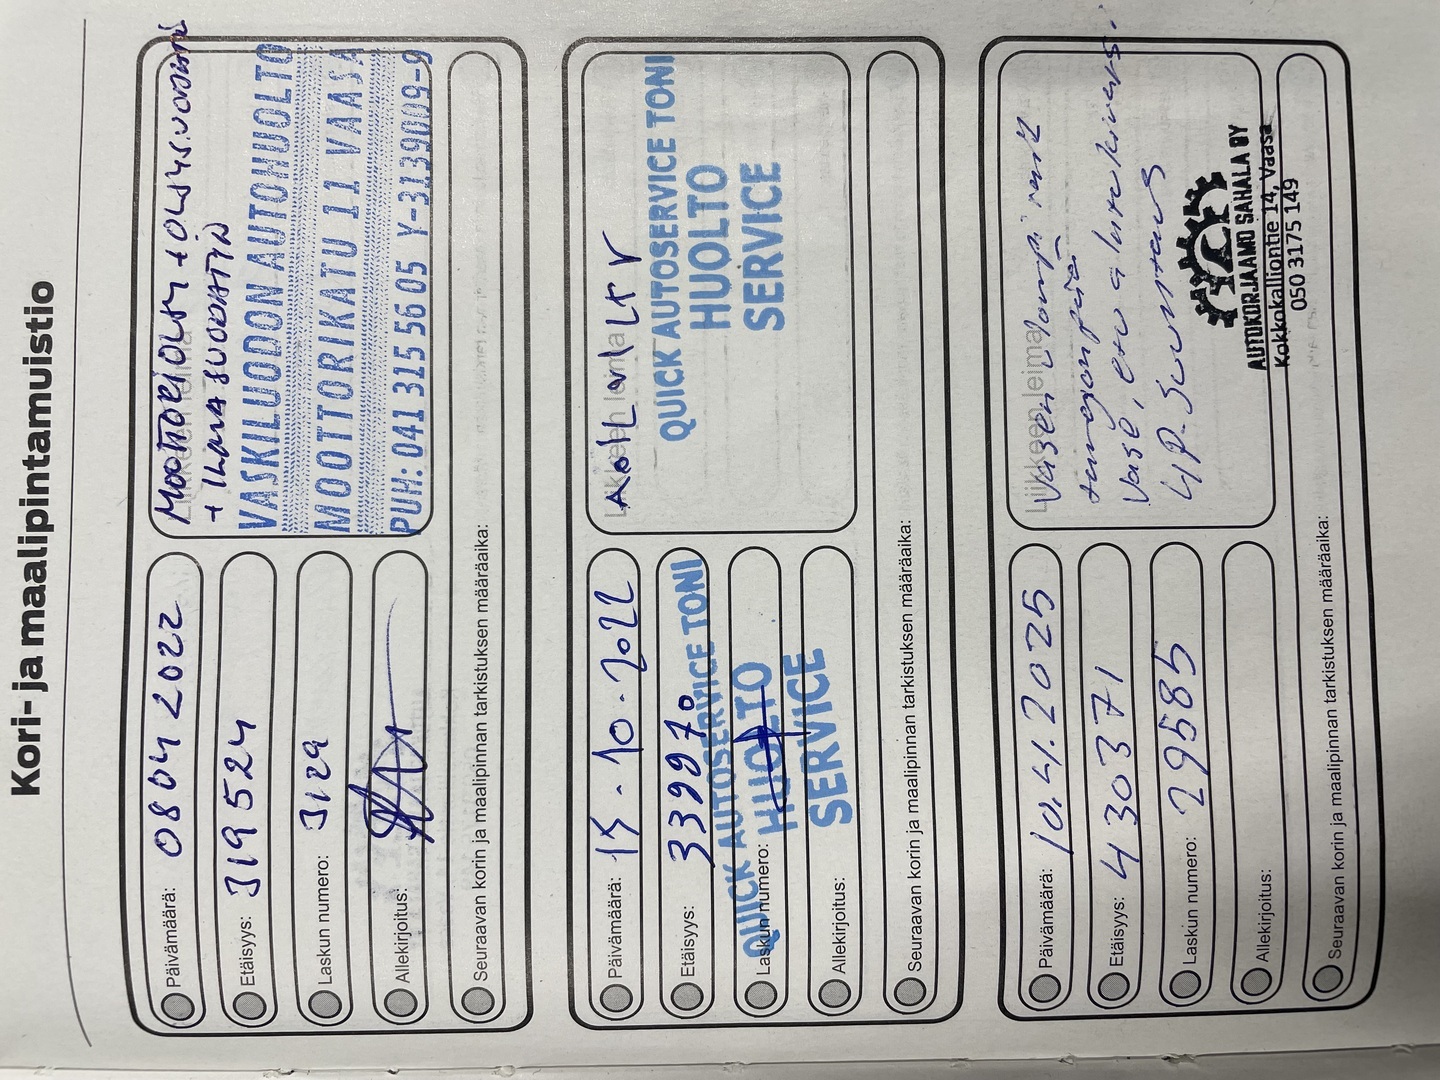 Kori- ja maalipintamuistio
Päivämäärä: 08 04 2022
Etäisyys: 319 524
Laskun numero: 3129
Allekirjoitus:
Seuraavan korin ja maalipinnan tarkistuksen määräaika:
MOOTTORIÖLJY + ÖLJYS.UODATIN
+ ILMA SUODATIN
VASKILUODON AUTOHUOLTO
MOOTTORIKATU 11 VAASA
PUH: 041 315 56 05 Y-3139009-9
Päivämäärä: 15-10-2022
Etäisyys: 339970
Laskun numero:
Allekirjoitus:
Seuraavan korin ja maalipinnan tarkistuksen määräaika:
QUICK AUTOSERVICE TONI
HUOLTO
SERVICE
Liikkeen leima
QUICK AUTOSERVICE TONI
HUOLTO
SERVICE
Päivämäärä: 10.4.2025
Etäisyys: 430371
Laskun numero: 29585
Allekirjoitus:
Seuraavan korin ja maalipinnan tarkistuksen määräaika:
Liikkeen leima
Vasen
Vase, etu alatukivarsi
4P-Suuntaus
AUTOKORJAAMO SAHALA OY
Kokkokalliontie 14, Vaasa
050 3175 149